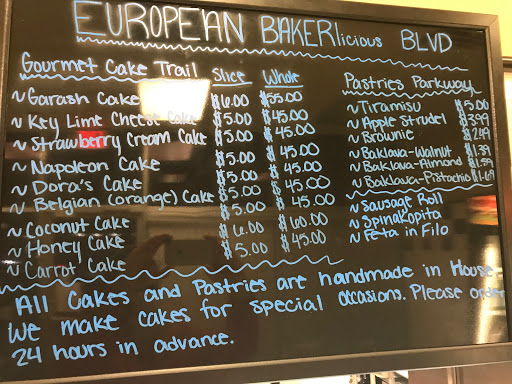 EUROPEAN BAKERlicious BLVD
Gourmet Cake Trail Slice Whole
~Garash Cake $6.00 $55.00
~Key Lime Cheese Cake $5.00 $45.00
~Strawberry Cream Cake $5.00 $45.00
~Napoleon Cake $5.00 $45.00
~Dora's Cake $5.00 $45.00
~Belgian (orange) Cake $5.00 $45.00
~Coconut Cake $5.00 $45.00
~Honey Cake $6.00 $60.00
~Carrot Cake $5.00 $45.00
Pastries Parkway
~Tiramisu $5.00
~Apple Strudel $3.99
~Brownie $2.49
~Baklava-Walnut $1.39
~Baklava-Almond $1.59
~Baklava-Pistachio $1.69
~Sausage Roll
~Spinakopita
~Feta in Filo
All Cakes and Pastries are handmade in House
We make cakes for special occasions. Please order
24 hours in advance.